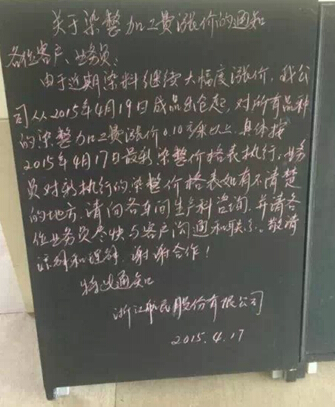 关于染整加工费涨价的通知
各位客户、业务员:
由于近期染料继续大幅度涨价，我公
司从2015年4月19日成品出仓起，对所有品种
的染整加工费涨价0.10元/米以上，具体按
2015年4月17日最新染整价格表执行，业务
员对新执行的染整价格表如有不清楚
的地方，请向各车间生产科咨询，并请各
位业务员尽快与客户沟通和联系。敬请
谅解和理解，谢谢合作！
特此通知
浙江航民股份有限公司
2015.4.17